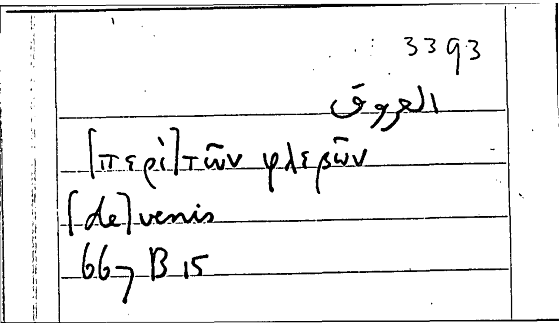 3393
العروق
[περὶ] τῶν φλεβῶν
[de] venis
667 B 15